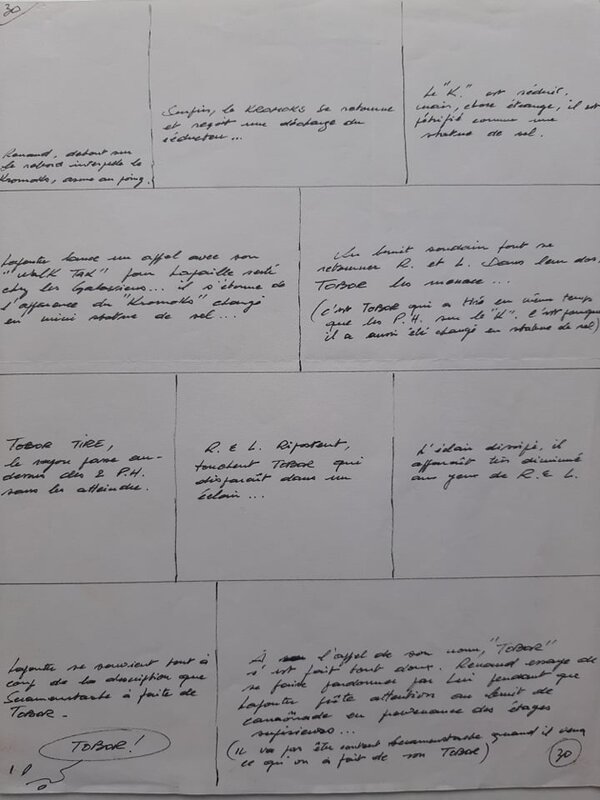 30
Renaud, debout sur
le rebord interpelle le
Kromoks, arme au poing.
Surpris, le KROMOKS se retourne
et reçoit une décharge du
réducteur...
Le "K." est réduit.
mais, chose étrange, il est
pétrifié comme une
statue de sel.
lance un appel avec son
"Walk Tak" pour resté
chez les Galaxiens... il s'étonne de
l'apparence du "Kromoks" changé
en mini statue de sel...
Un bruit soudain fait se
retourner R. et L. Dans leur dos,
TOBOR les menace...
(C'est TOBOR qui a tiré en même temps
que les P.H. sur le "K". C'est pourquoi
il a aussi été changé en statue de sel)
TOBOR TIRE,
le rayon passe au-
dessus des 2 P.H.
sans les atteindre.
R. & L. Ripostent,
touchent TOBOR qui
disparaît dans un
éclair...
L'éclair dissipé, il
apparaît très diminué
aux yeux de R. & L.
se souvient tout à
coup de la description que
à faite de
TOBOR.
TOBOR!
À l'appel de son nom, "TOBOR"
s'est fait tout doux. Renaud essaye de
se faire pardonner par Lui pendant que
prête attention au bruit de
canonnade en provenance des étages
supérieurs...
(IL va pas être content quand il verra
ce qu'on a fait de son TOBOR)
30